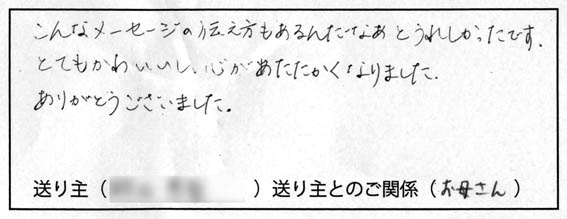 こんなメーセージの伝え方もあるんだなあとうれしかったです.
とてもかわいいし、心があたたかくなりました.
ありがとうございました.
送り主（　　　　）送り主とのご関係（お母さん）